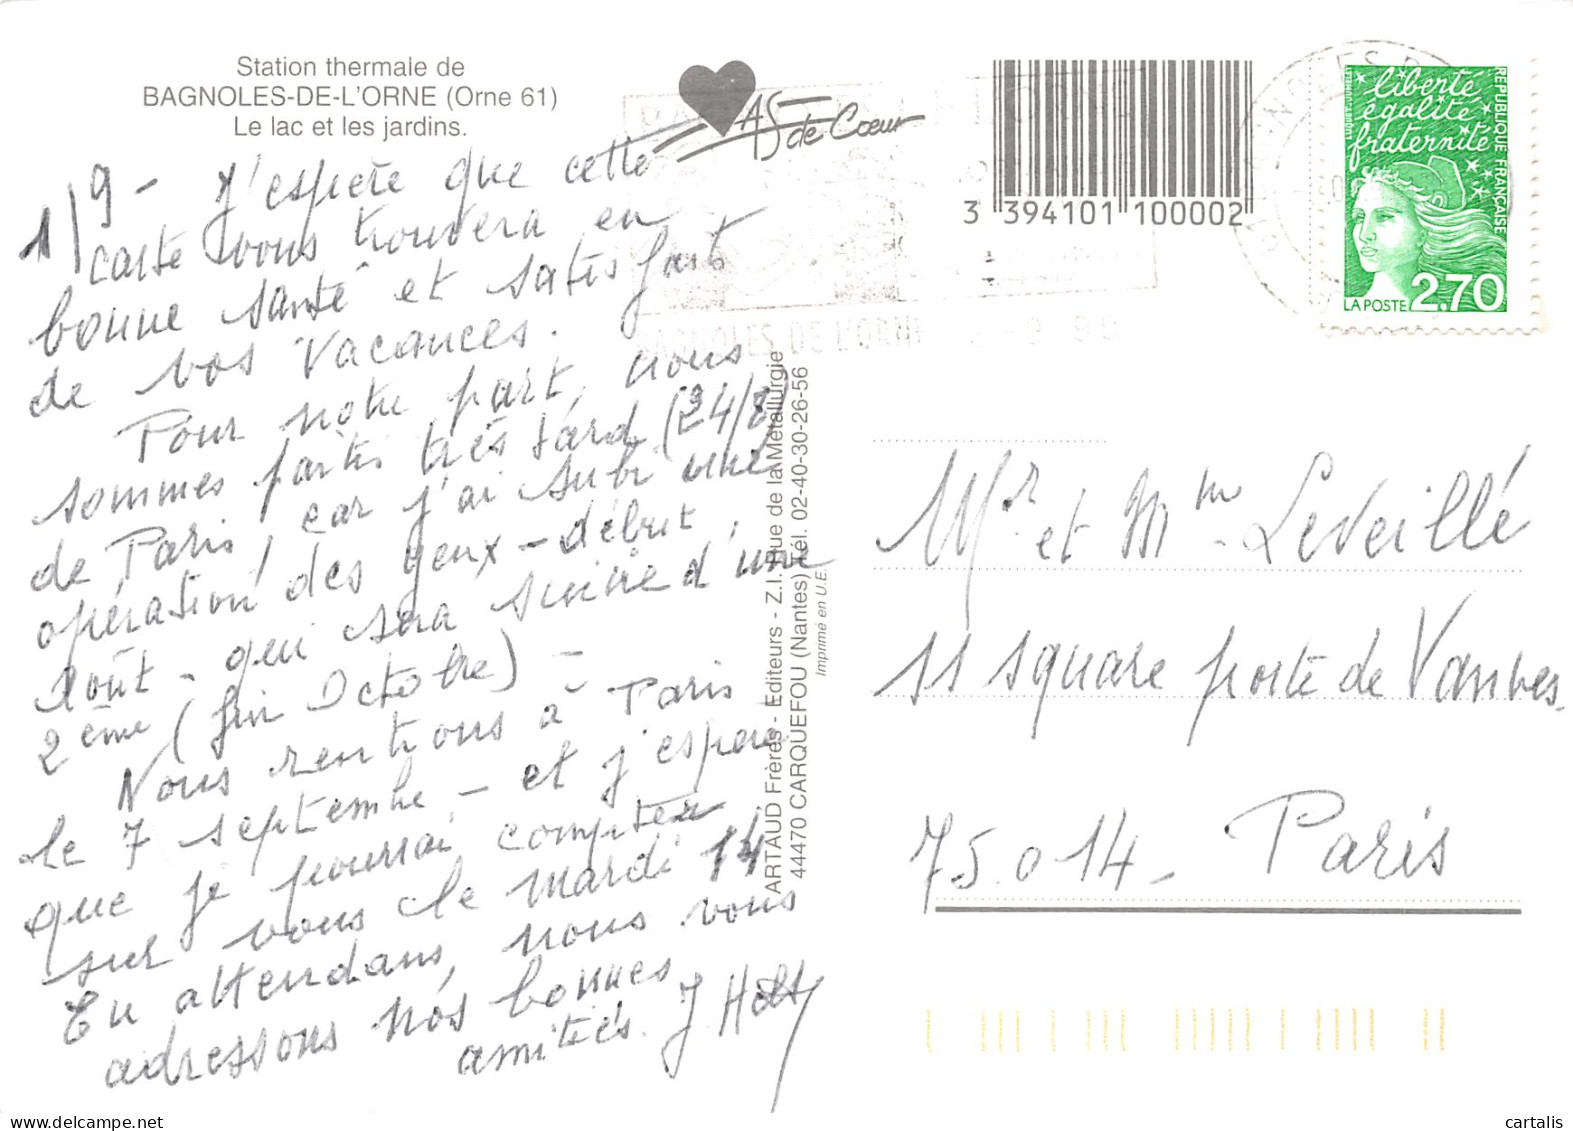 Station thermale de
BAGNOLES-DE-L'ORNE (Orne 61)
Le lac et les jardins.
AS de Cœur
3 394101 100002
REPUBLIQUE FRANÇAISE
liberté
égalité
fraternité
LA POSTE 2,70
BAGNOLES DE L'ORNE
1/9 - J'espère que cette
carte vous trouvera en
bonne santé et satisfaits
de vos vacances.
Pour notre part, nous
sommes partis très tard (24/8)
de Paris, car j'ai subi une
opération des yeux - début
Août - qui sera suivie d'une
2ème (fin Octobre) -
Nous rentrons à Paris
le 7 septembre - et j'espère
que je pourrai compter
sur vous le mardi 14
En attendant, nous vous
adressons nos bonnes
amitiés. J.
ARTAUD Frères - Editeurs - Z.I. Rue de la Métallurgie
44470 CARQUEFOU (Nantes) Tél. 02-40-30-26-56
Imprimé en U.E.
Mr et Mme Leveillé
11 square porte de Vanves.
75.014 - Paris
cartalis